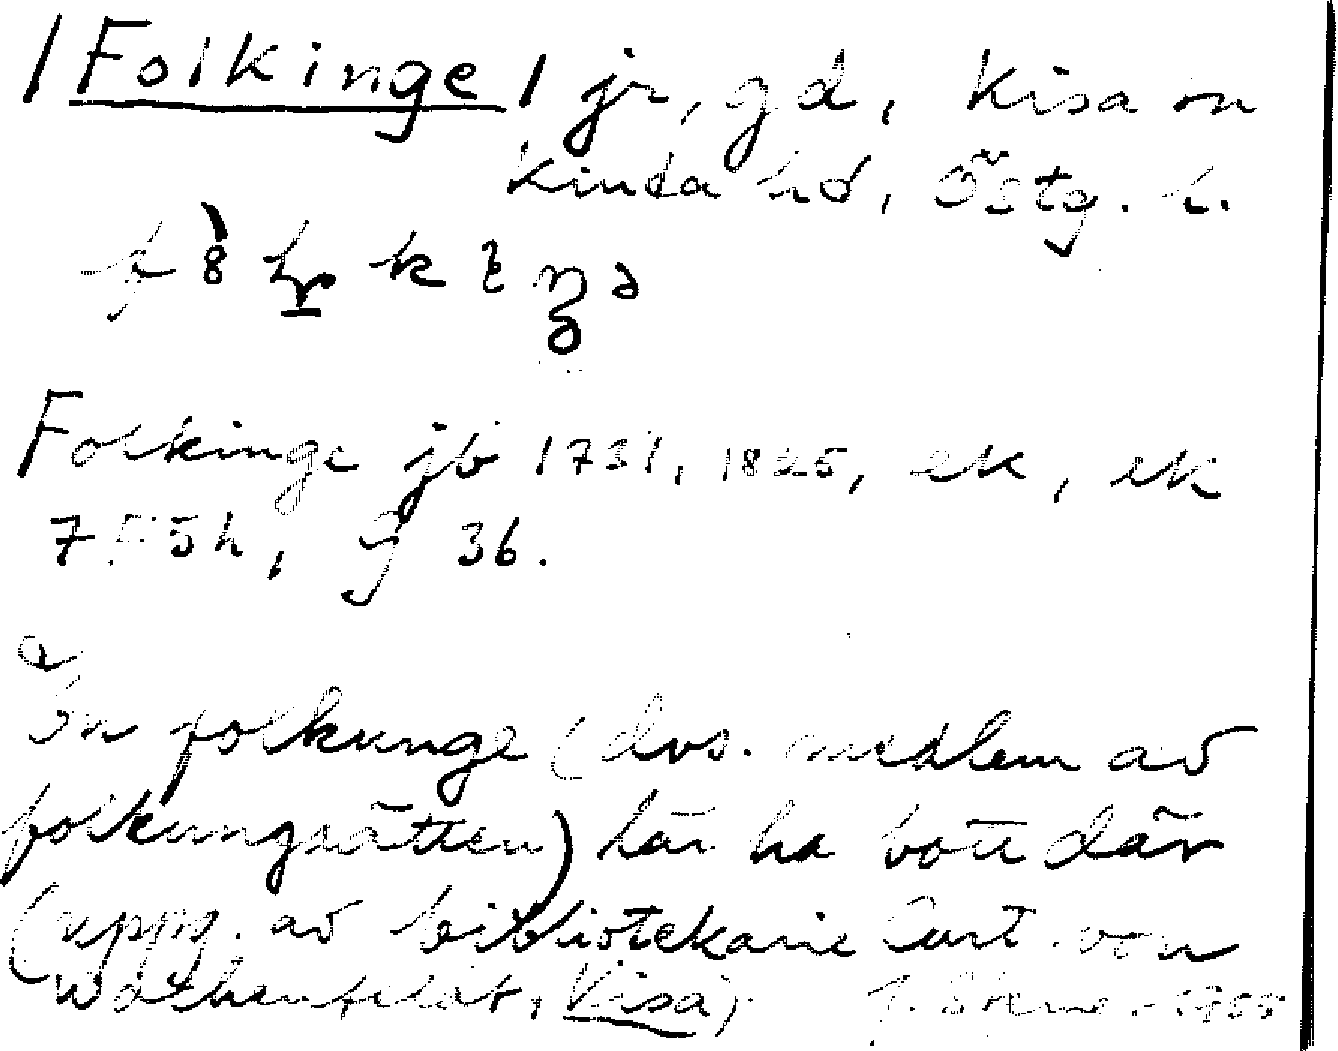 /Folkinge/ jr, gd, Kisa sn
Kinda hd, Östg. l.
Folkinge jb 1731, 1825, ek, ek
36.
En folkunge (dvs. medlem av
folkungaätten) lär ha bott där
(uppg. av bibliotekarie Curt von
Wachenfeldt, Kisa).